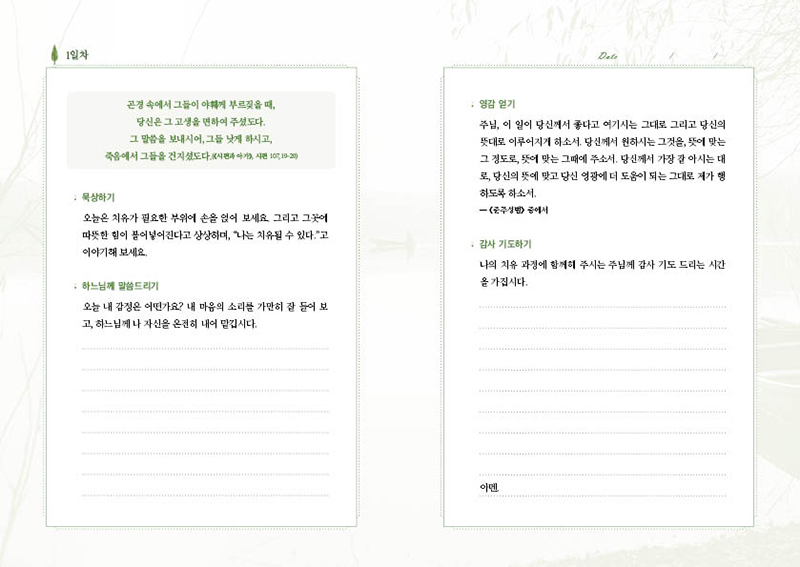 1일차
곤경 속에서 그들이 야훼께 부르짖을 때,
당신은 그 고생을 면하여 주셨도다.
그 말씀을 보내시어, 그들 낫게 하시고,
죽음에서 그들을 건지셨도다.(《시편과 아가》, 시편 107,19-20)
묵상하기
오늘은 치유가 필요한 부위에 손을 얹어 보세요. 그리고 그곳에
따뜻한 힘이 불어넣어진다고 상상하며, “나는 치유될 수 있다.”고
이야기해 보세요.
하느님께 말씀드리기
오늘 내 감정은 어떤가요? 내 마음의 소리를 가만히 잘 들어 보
고, 하느님께 나 자신을 온전히 내어 맡깁시다.
Date / /
영감 얻기
주님, 이 일이 당신께서 좋다고 여기시는 그대로 그리고 당신의
뜻대로 이루어지게 하소서. 당신께서 원하시는 그것을, 뜻에 맞는
그 정도로, 뜻에 맞는 그때에 주소서. 당신께서 가장 잘 아시는 대
로, 당신의 뜻에 맞고 당신 영광에 더 도움이 되는 그대로 제가 행
하도록 하소서.
— 《준주성범》 중에서
감사 기도하기
나의 치유 과정에 함께해 주시는 주님께 감사 기도 드리는 시간
을 가집시다.
아멘.